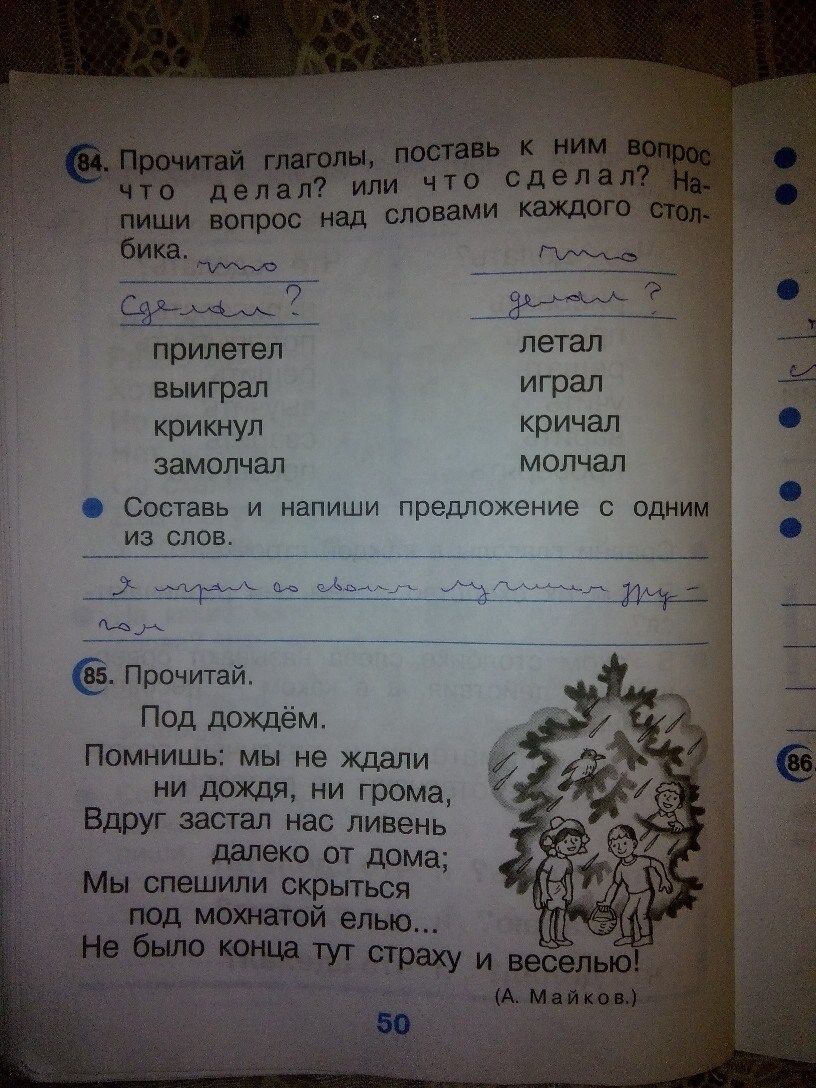 84. Прочитай глаголы, поставь к ним вопрос
что делал? или что сделал? На-
пиши вопрос над словами каждого стол-
бика.
что что
сделал? делал?
прилетел летал
выиграл играл
крикнул кричал
замолчал молчал
Составь и напиши предложение с одним
из слов.
Я играл со своим лучшим дру-
гом
85. Прочитай.
Под дождём.
Помнишь: мы не ждали
ни дождя, ни грома,
Вдруг застал нас ливень
далеко от дома;
Мы спешили скрыться
под мохнатой елью...
Не было конца тут страху и веселью!
(А. Майков.)
50
86.